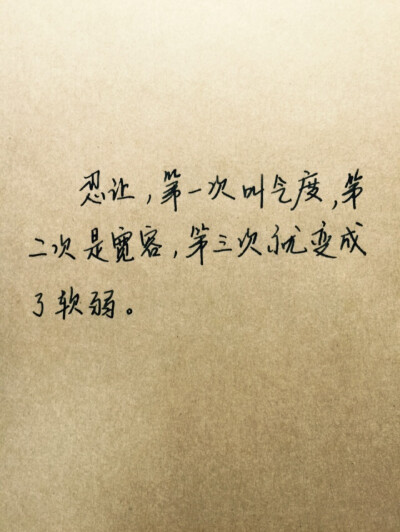 忍让，第一次叫气度，第
二次是宽容，第三次就变成
了软弱。